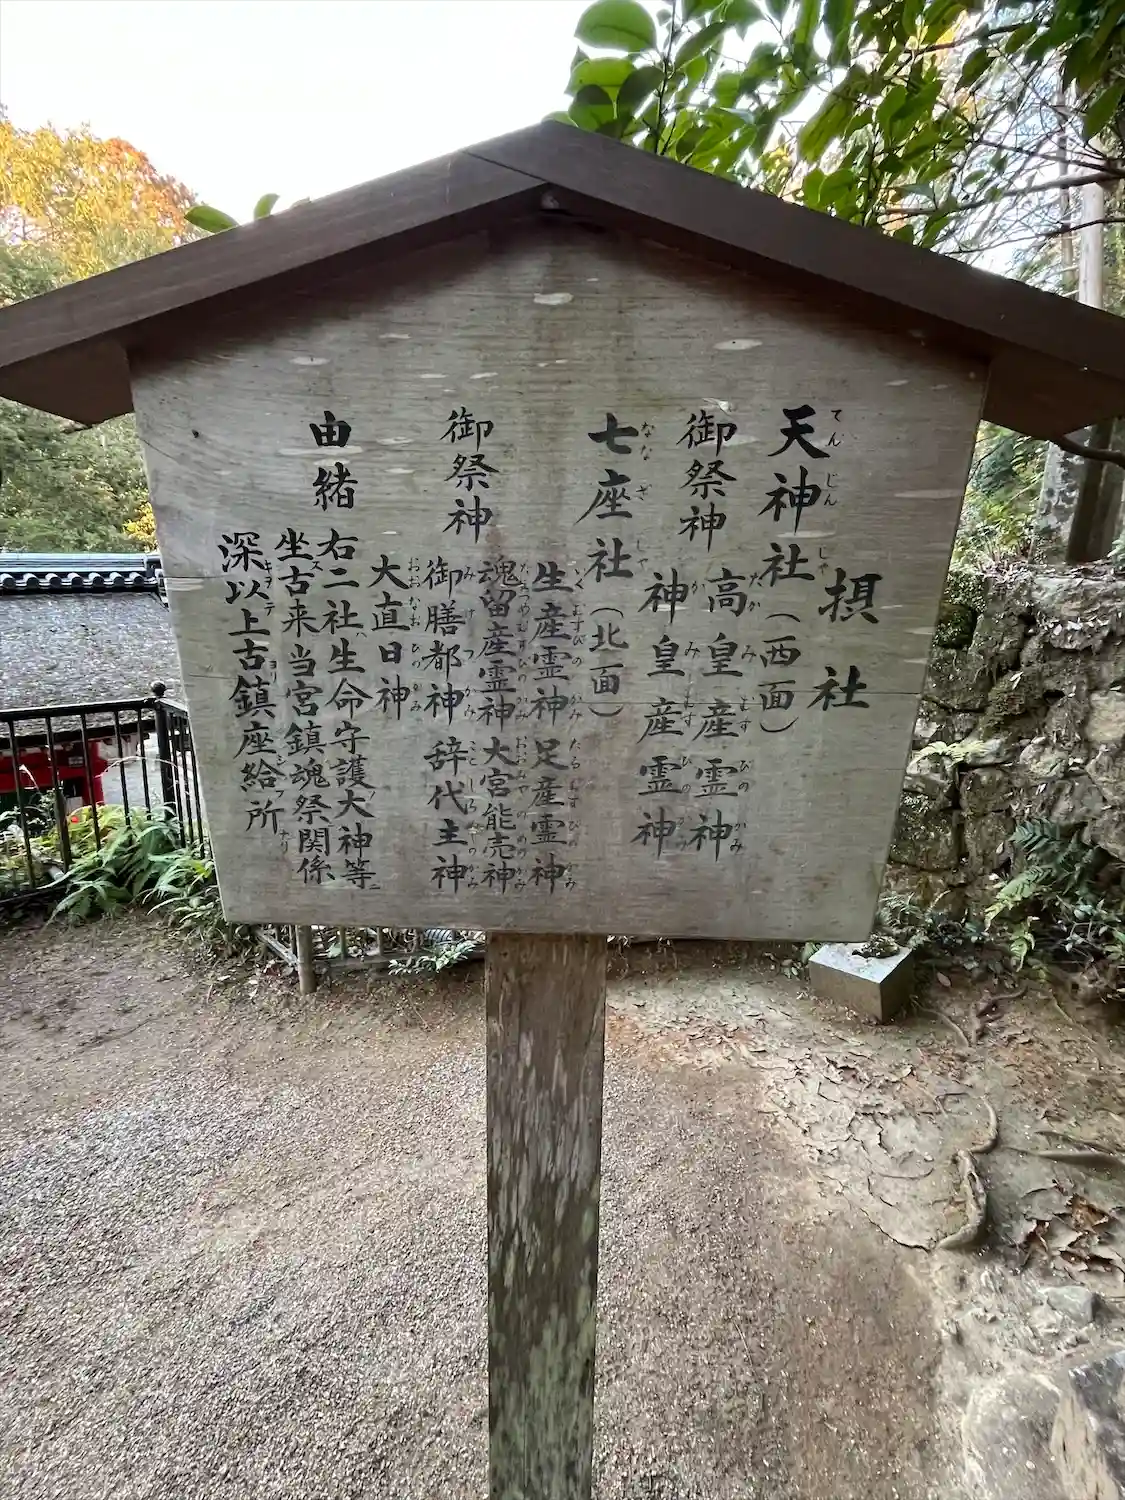 摂社
天神社（西面）
御祭神
高皇産霊神
神皇産霊神
七座社（北面）
御祭神
生産霊神 足産霊神
魂留産霊神 大宮能売神
御膳都神 辞代主神
大直日神
由緒
右二社ハ生命守護大神等ニ
坐ス古来当宮鎮魂祭関係
深キヲ以テ上古ヨリ鎮座シ給フ所ナリ